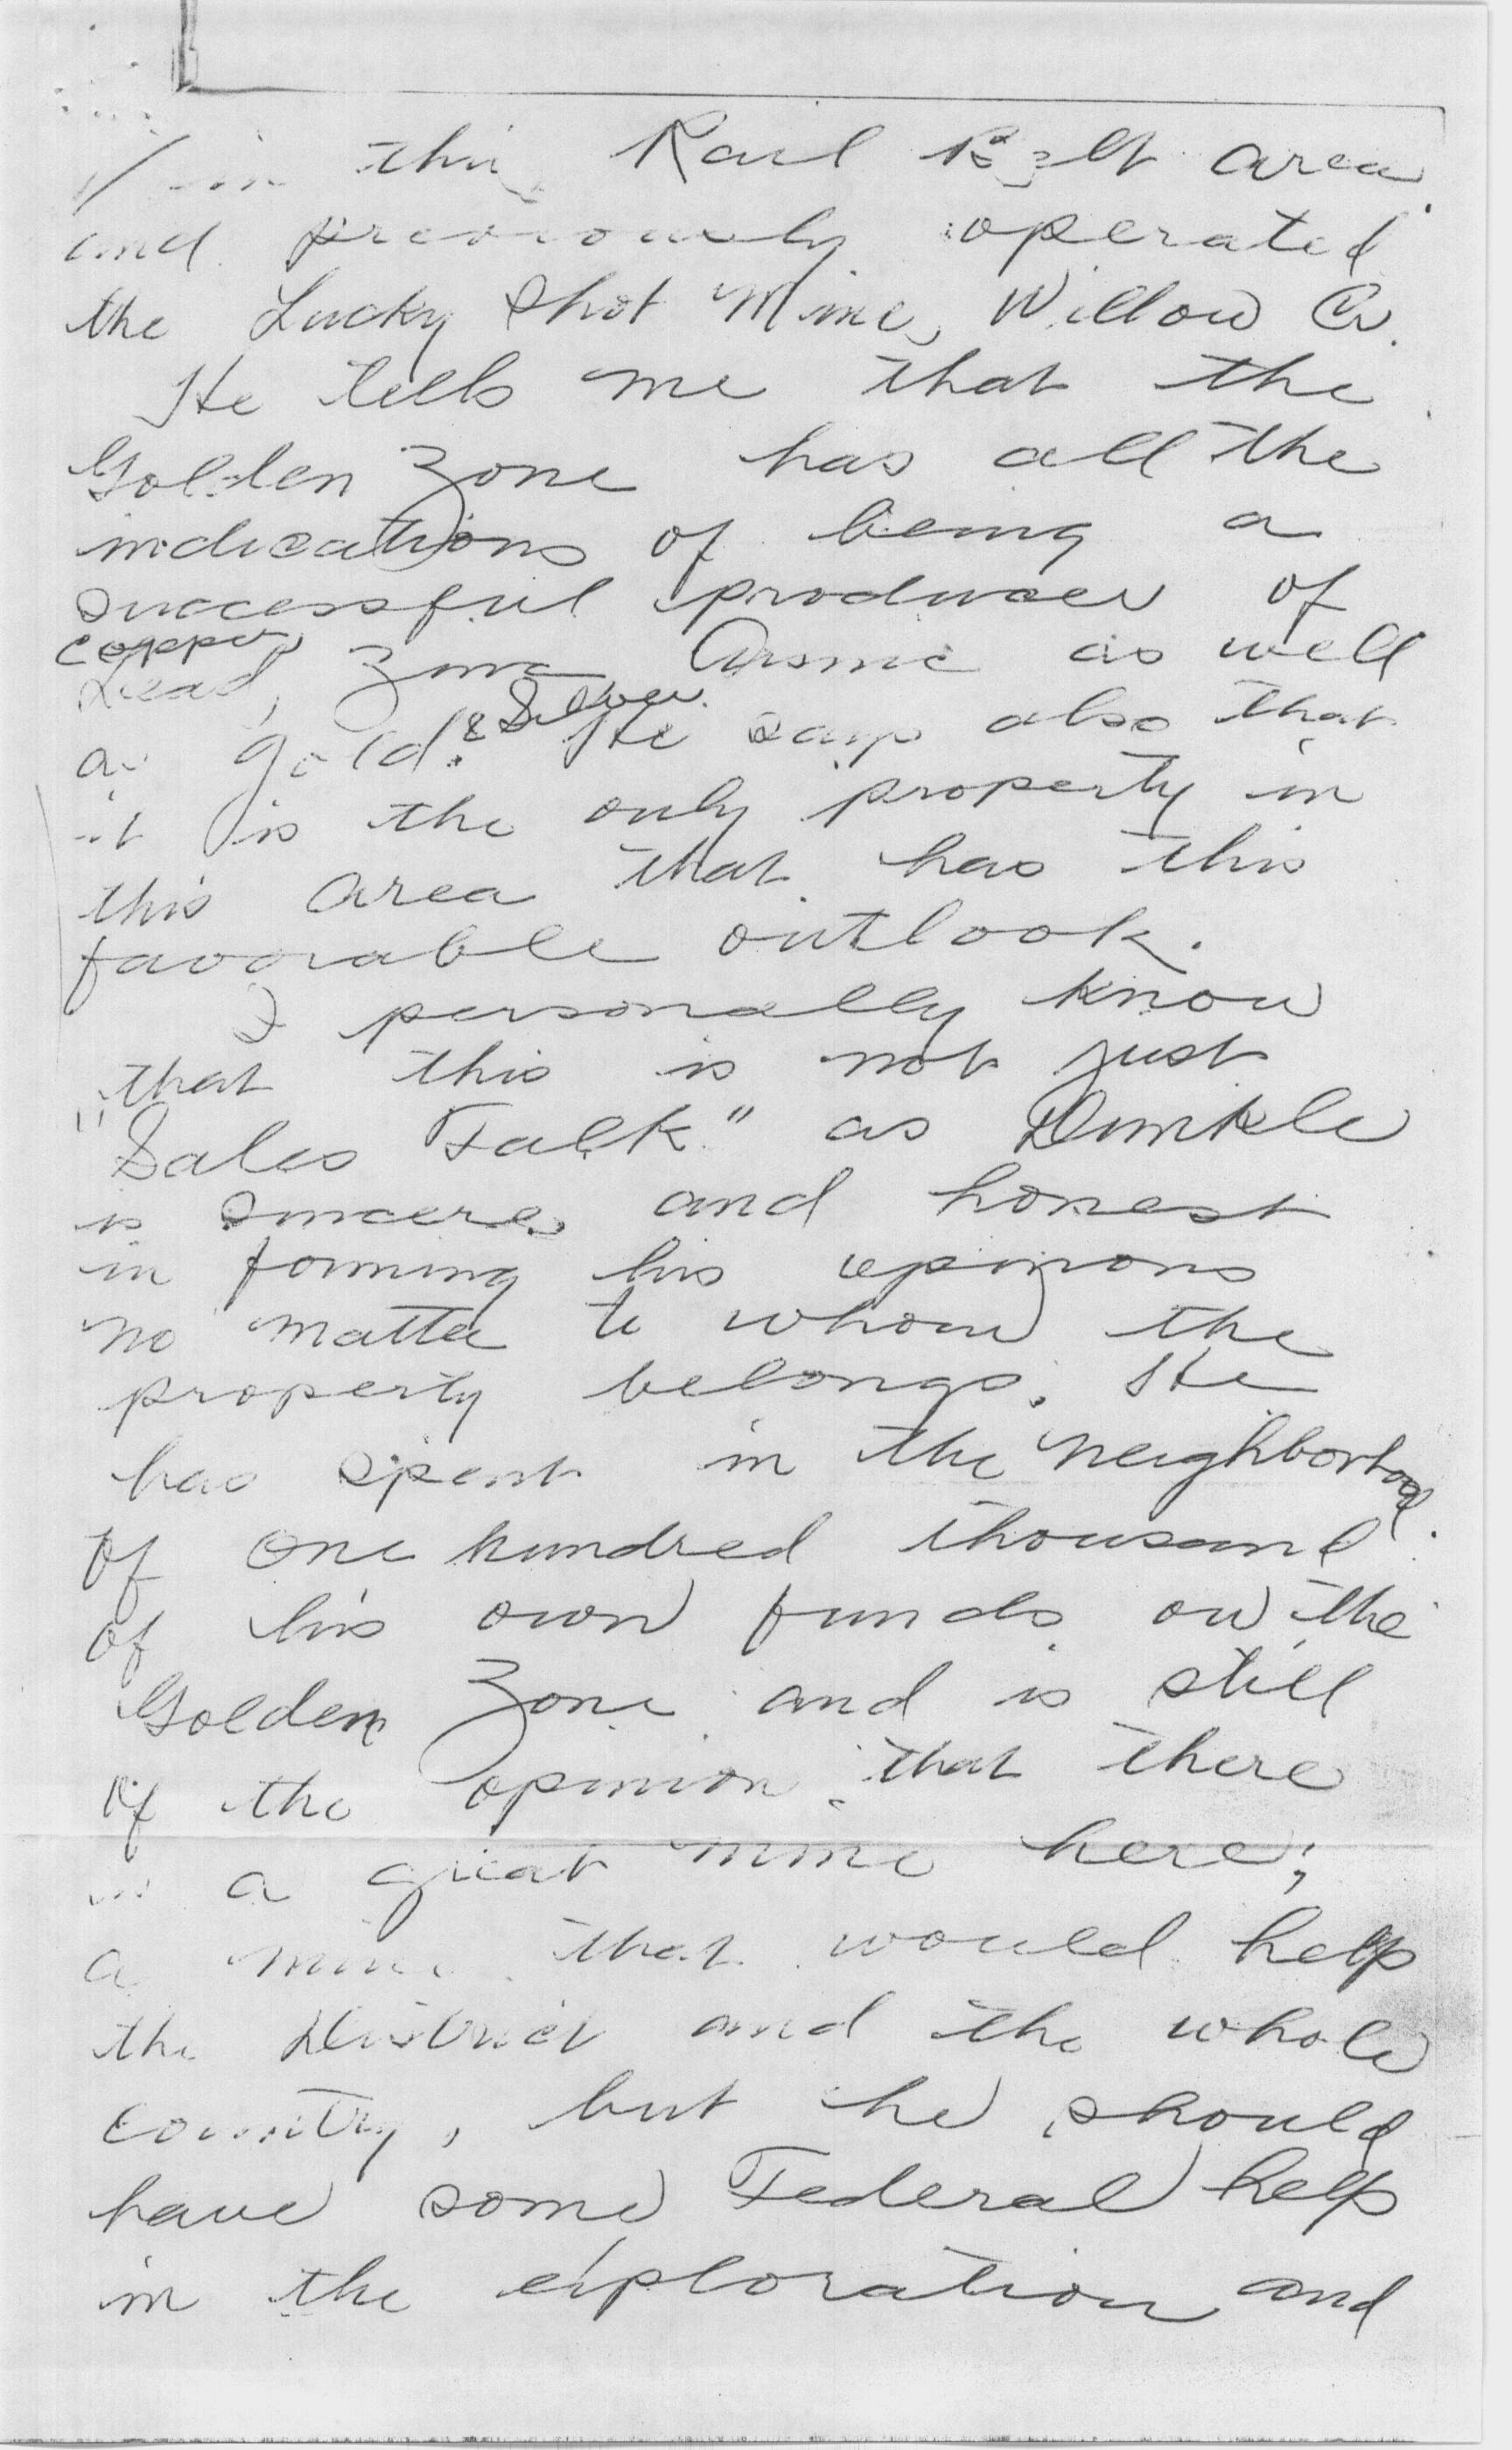 in this Rail Belt area
and previously operated
the Lucky Shot Mine, Willow Cr.
He tells me that the
Golden Zone has all the
indications of being a
successful producer of
copper,
Lead, Zinc Arsnic as well
as gold. & Silver. He says also that
it is the only property in
this area that has this
favorable outlook.
I personally know
that this is not just
"Sales Talk" as Dunkle
is sincere and honest
in forming his opinions
no matter to whom the
property belongs. He
has spent in the neighborhood
of one hundred thousand
of his own funds on the
Golden Zone and is still
of the opinion that there
is a great mine here;
a mine that would help
the District and the whole
country, but he should
have some Federal help
in the exploration and